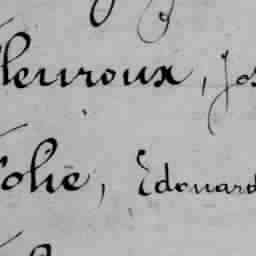 leuroux, Jos
Folie, Edouard